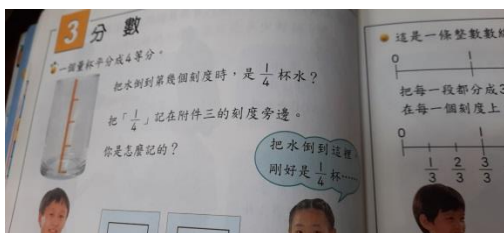 3 分數
一個量杯平分成4等分。
把水倒到第幾個刻度時，是1/4杯水？
把「1/4」記在附件三的刻度旁邊。
你是怎麼記的？
把水倒到這裡，
剛好是1/4杯……
這是一條整數數線
0 1
把每一段都分成3
在每一個刻度上
0 1
1/3 2/3 3/3